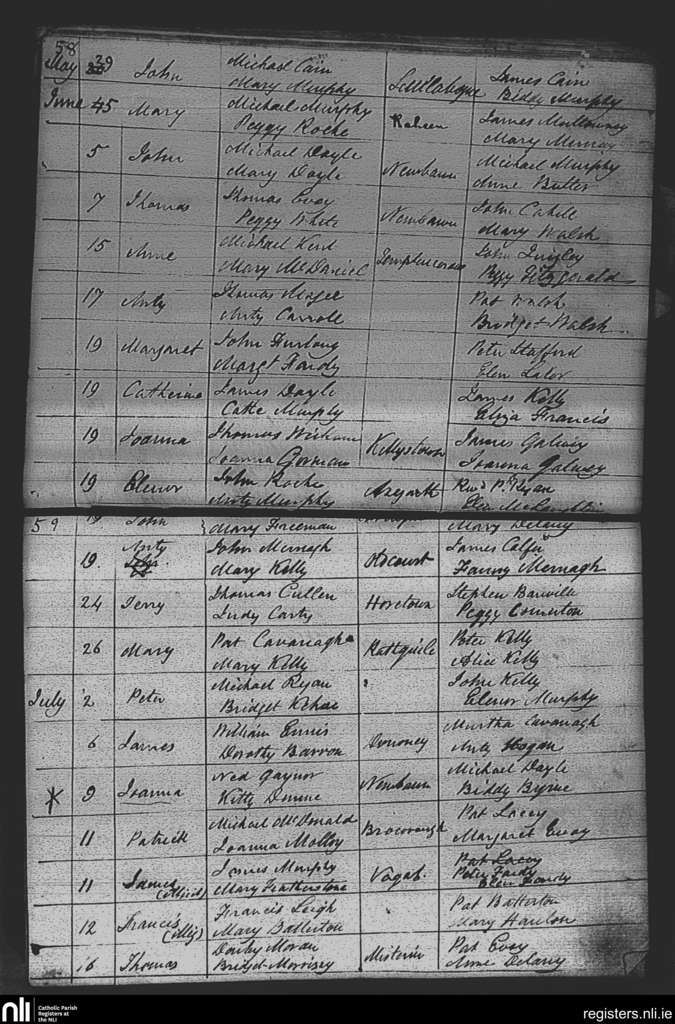 58
May 29 John Michael Cain James Cain
Mary Murphy Biddy Murphy
June 45 Mary Michael Murphy Raheen James
Peggy Roche Mary Murray
5 John Michael Doyle Newbawn Michael Murphy
Mary Doyle Anne Butler
7 Thomas Thomas Evoy Newbawn John Cahill
Peggy White Mary Walsh
15 Anne Michael Kent John Quigley
Mary McDaniel Peggy Fitzgerald
17 Anty Thomas Magee Pat Walsh
Anty Carroll Bridget Walsh
19 Margaret John Furlong Peter Stafford
Margt Fardy Elen Lalor
19 Catherine James Doyle James Kelly
Catte Murphy Eliza Francis
19 Joanna Thomas Kellystown James Galway
Joanna Gorman Joanna Galway
19 Elenor John Roche Revd P. Ryan
Anty Murphy
59 John Mary Freeman Mary Delany
19. Anty John Mernagh James Colfer
Mary Kelly Fanny Mernagh
24 Terry Thomas Cullen Horetown Stephen
Judy Carty Peggy Comerton
26 Mary Pat Cavanagh Peter Kelly
Mary Kelly Alice Kelly
July 2 Peter Michael Ryan John Kelly
Bridget Kehoe Elenor Murphy
6 James William Ennis Murtha Cavanagh
Dorothy Barron Anty Hogan
9 Joanna Ned Gaynor Newbawn Michael Doyle
Kitty Biddy Byrne
11 Patrick Michael McDonald Pat Lacey
Joanna Molloy Margaret Evoy
11 James James Murphy Vagab. Pat Lacey
Mary Featherstone Peter Fardy
Elen Fardy
12 Francis Francis Leigh Pat Batterton
Mary Batterton Mary Hanlon
16 Thomas Darby Moran Misterin Pat Evoy
Bridget Morrissy Anne Delany
nli Catholic Parish
Registers at
the NLI
registers.nli.ie